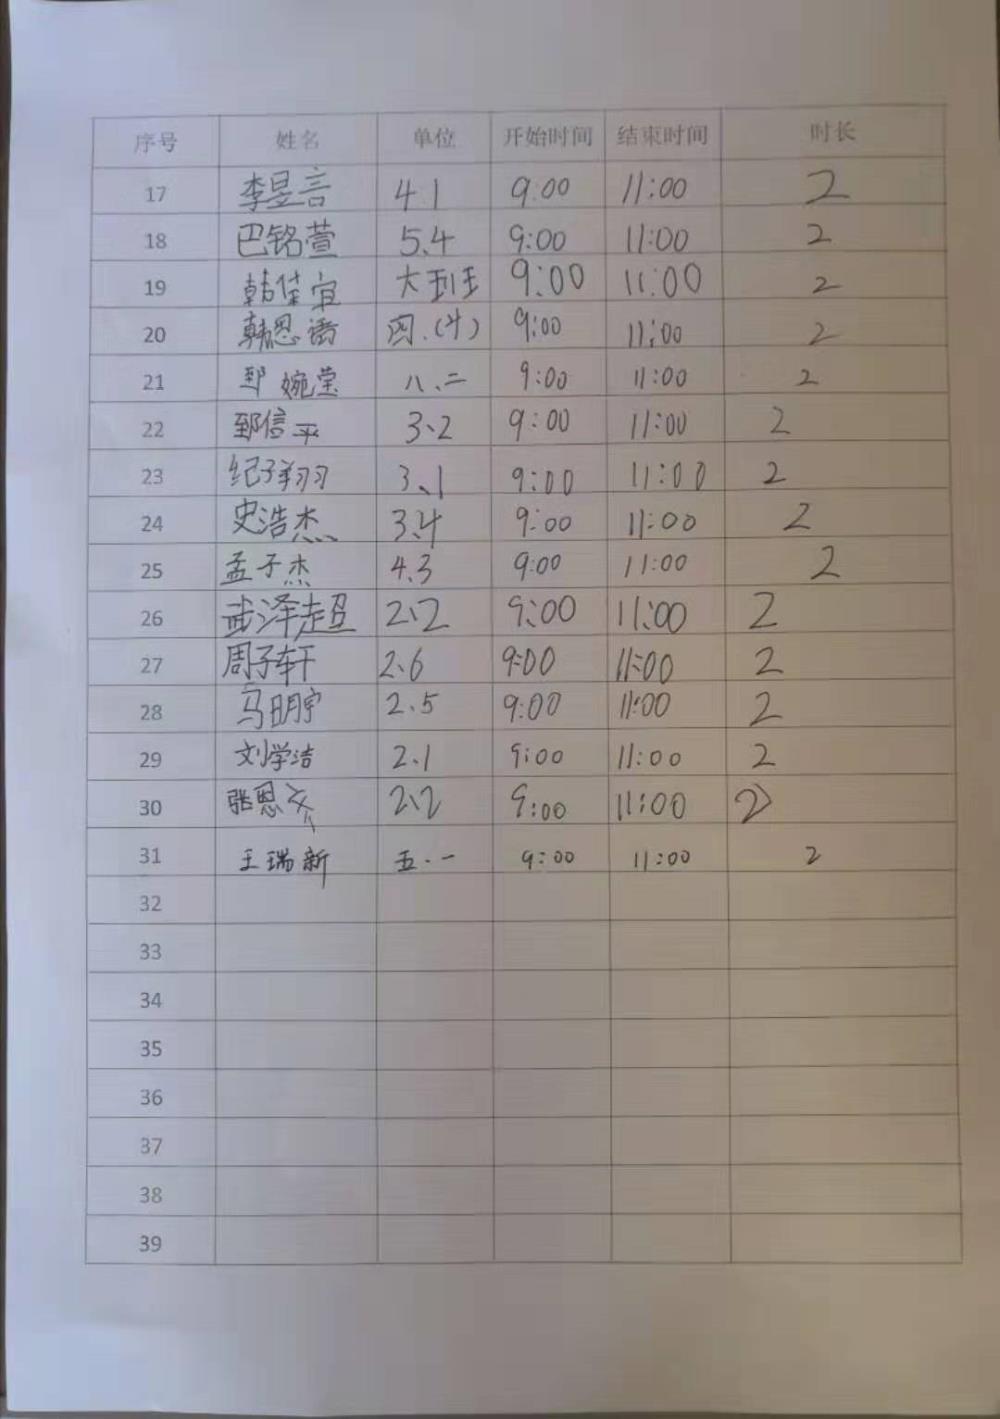 序号 姓名 单位 开始时间 结束时间 时长
17 李昱言 4.1 9:00 11:00 2
18 巴铭萱 5.4 9:00 11:00 2
19 韩佳宜 大班班 9:00 11:00 2
20 韩恩语 四.(4) 9:00 11:00 2
21 郅婉莹 八、二 9:00 11:00 2
22 郅信平 3、2 9:00 11:00 2
23 纪子翔 3、1 9:00 11:00 2
24 史浩杰 3.4 9:00 11:00 2
25 孟子杰 4.3 9:00 11:00 2
26 武泽超 2、2 9:00 11:00 2
27 周子轩 2、6 9:00 11:00 2
28 马明宇 2.5 9:00 11:00 2
29 刘学洁 2.1 9:00 11:00 2
30 张恩 2、2 9:00 11:00 2
31 王瑞新 五.一 9:00 11:00 2
32
33
34
35
36
37
38
39